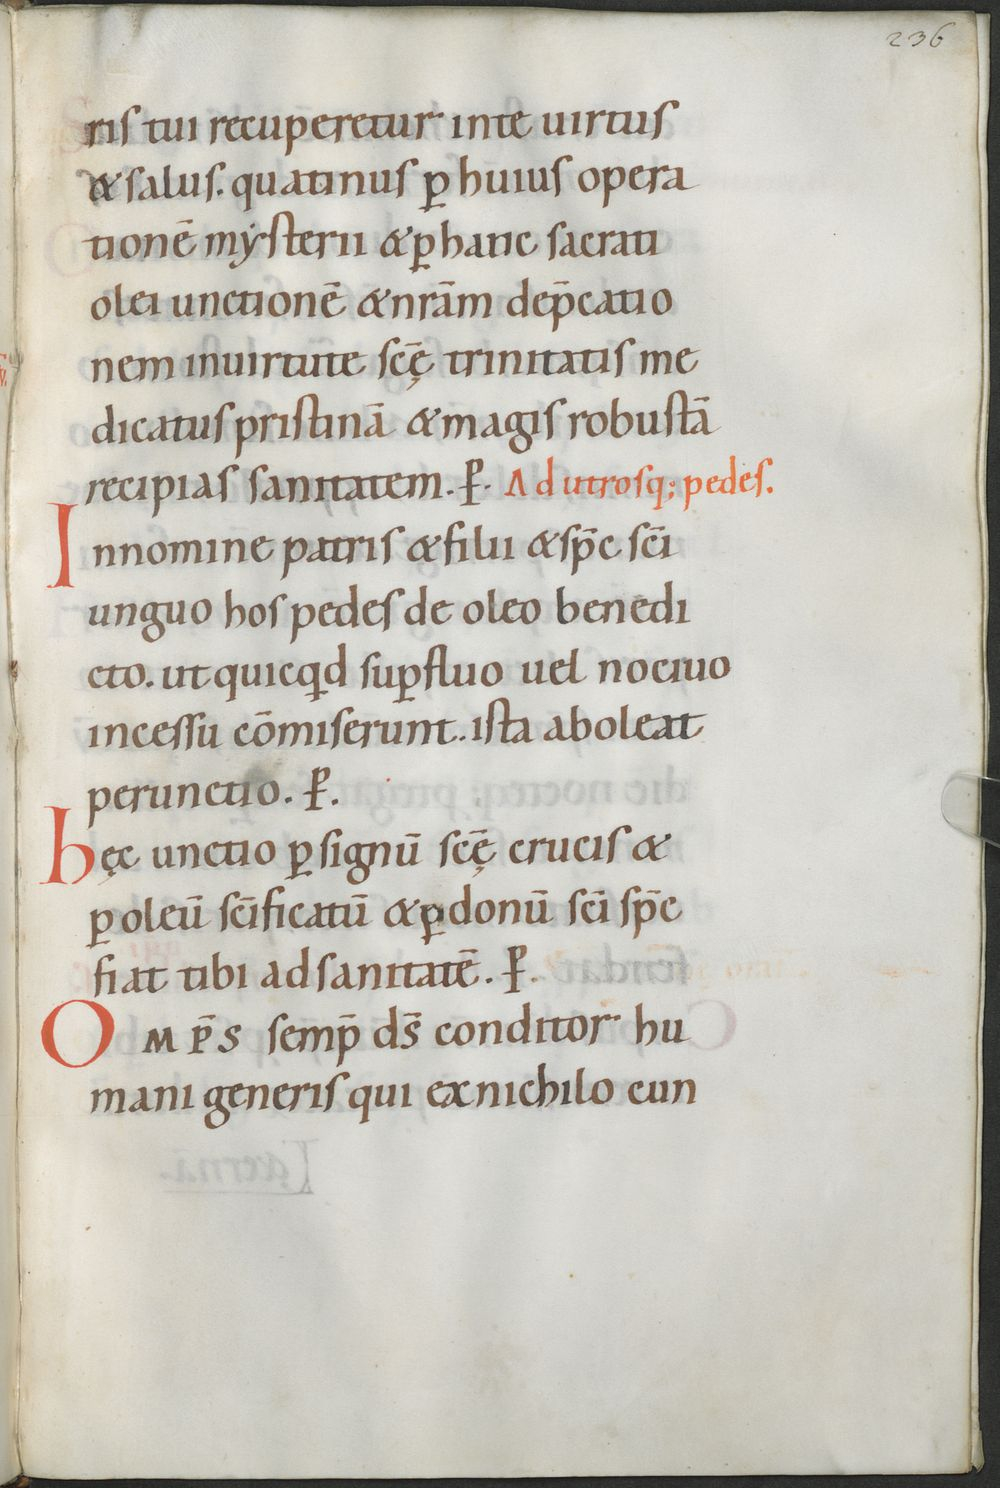 236
ris tui recuperetur inte uirtus
& salus. quatinus ꝑ huius opera
tionē mẏsterii &ꝑ hanc sacrati
olei unctionē &nr̄am dep̄catio
nem inuirtute sc̄ę trinitatis me
dicatus pristinā & magis robustā
recipias sanitatem. P̄. Ad utrosq; pedes.
Innomine patris & filii & sp̄c sc̄i
unguo hos pedes de oleo benedi
cto. ut quicq̣d suꝑfluo uel nociuo
incessu cōmiserunt. ista aboleat
perunctio. P̄.
hęc unctio ꝑ signū sc̄ę crucis &
ꝑ oleū sc̄ificatū &ꝑ donū sc̄i sp̄c
fiat tibi ad sanitatē. P̄.
O M P̄ S semp̄ ds̄ conditor hu
mani generis qui exnichilo cun